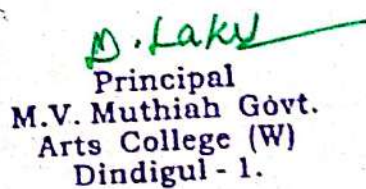 D. Laky
Principal
M.V. Muthiah Govt.
Arts College (W)
Dindigul - 1.